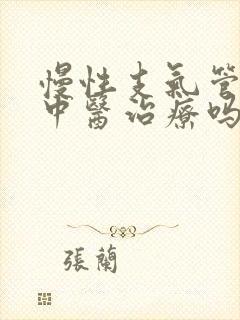 慢性支氣管
中醫治療嗎
張蘭